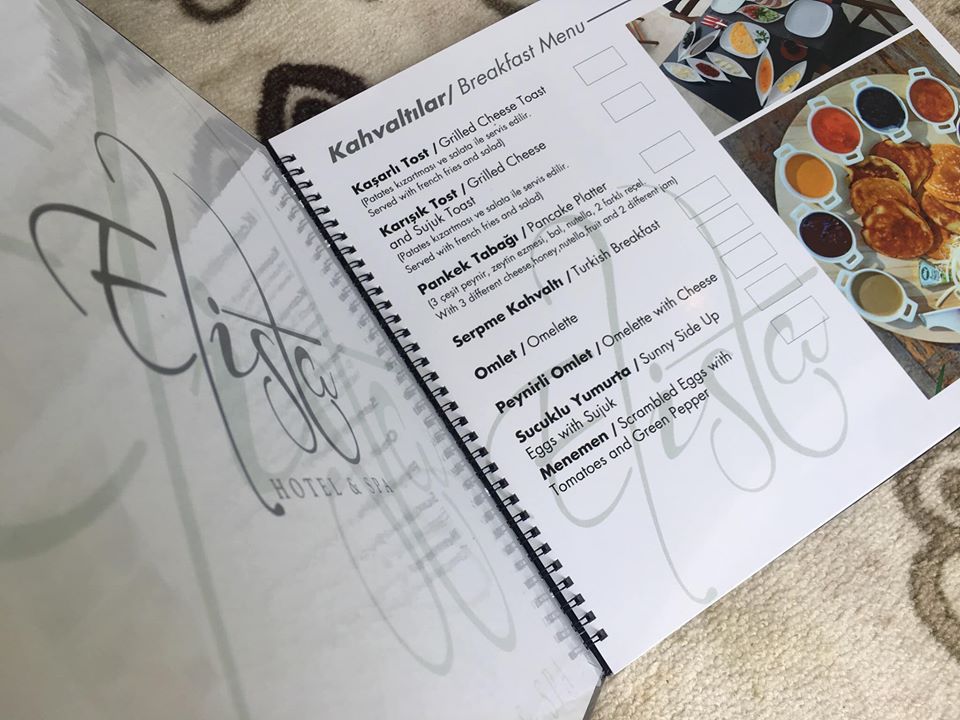 Elista
HOTEL & SPA
Kahvaltılar/ Breakfast Menu
Kaşarlı Tost / Grilled Cheese Toast
(Patates kızartması ve salata ile servis edilir.
Served with french fries and salad)
Karışık Tost / Grilled Cheese
and Sujuk Toast
(Patates kızartması ve salata ile servis edilir.
Served with french fries and salad)
Pankek Tabağı / Pancake Platter
(3 çeşit peynir, zeytin ezmesi, bal, nutella, 2 farklı reçel
With 3 different cheese,honey,nutella,fruit and 2 different jam)
Serpme Kahvaltı / Turkish Breakfast
Omlet / Omelette
Peynirli Omlet / Omelette with Cheese
Sucuklu Yumurta / Sunny Side Up
Eggs with Sujuk
Menemen / Scrambled Eggs with
Tomatoes and Green Pepper
Elista